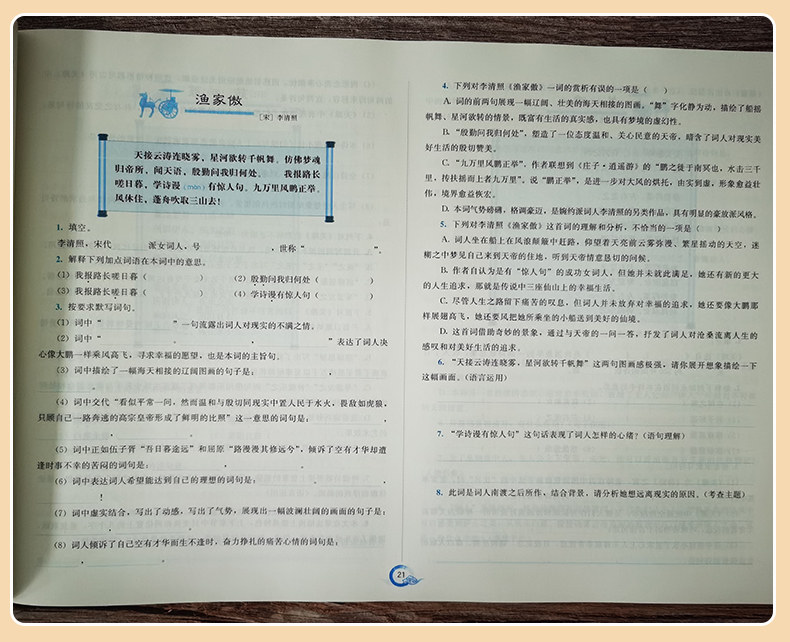 渔家傲
[宋] 李清照
天接云涛连晓雾，星河欲转千帆舞。仿佛梦魂
归帝所，闻天语，殷勤问我归何处。 我报路长
嗟日暮，学诗谩（màn）有惊人句。九万里风鹏正举。
风休住，蓬舟吹取三山去！
1. 填空。
李清照，宋代 派女词人，号 ，世称“ ”。
2. 解释下列加点词语在本词中的意思。
（1）我报路长嗟日暮（ ） （2）殷勤问我归何处（ ）
（3）我报路长嗟日暮（ ） （4）学诗谩有惊人句（ ）
3. 按要求默写词句。
（1）词中“ ”一句流露出词人对现实的不满之情。
（2）词中“ ， ”表达了词人决
心像大鹏一样乘风高飞，寻求幸福的愿望，也是本词的主旨句。
（3）词中描绘了一幅海天相接的辽阔图画的句子是： ，
。
（4）词中交代“看似平常一问，然而温和与殷切同现实中置人民于水火，畏敌如虎狼，
只顾自己一路奔逃的高宗皇帝形成了鲜明的比照”这一意思的词句是： ，
， 。
（5）词中正如伍子胥“吾日暮途远”和屈原“路漫漫其修远兮”，倾诉了空有才华却遭
逢时事不幸的苦闷的词句是： ， 。
（6）词中表达词人希望能达到自己的理想的词句是： 。
， ！
（7）词中虚实结合，写出了动感，写出了气势，展现出一幅波澜壮阔的画面的句子是：
， 。
（8）词人倾诉了自己空有才华而生不逢时，奋力挣扎的痛苦心情的词句是：
， 。
4. 下列对李清照《渔家傲》一词的赏析有误的一项是（ ）
A. 词的前两句展现一幅辽阔、壮美的海天相接的图画。“舞”字化静为动，描绘了船摇
帆舞、星河欲转的情景，既富有生活的真实感，也具有梦境的虚幻性。
B. “殷勤问我归何处”，塑造了一位态度温和、关心民意的天帝，暗含了词人对现实美
好生活的殷切赞美。
C. “九万里风鹏正举”，作者联想到《庄子·逍遥游》的“鹏之徙于南冥也，水击三千
里，抟扶摇而上者九万里”。说“鹏正举”，是进一步对大风的烘托，由实到虚，形象愈益壮
伟，境界愈益恢宏。
D. 本词气势磅礴，格调豪迈，是婉约派词人李清照的另类作品，具有明显的豪放派风格。
5. 下列对李清照《渔家傲》这首词的理解和分析，不恰当的一项是（ ）
A. 词人坐在船上在风浪颠簸中赶路，仰望着天亮前云雾弥漫、繁星摇动的天空，迷
糊之中梦见自己来到天帝的住地，听到天帝情意恳切的问候。
B. 作者自认为是有“惊人句”的成功女词人，但她并未就此满足，她还有新的更大
的人生追求，那就是传说中三座仙山上的幸福生活。
C. 尽管人生之路留下痛苦的叹息，但词人并未放弃对幸福的追求，她还要像大鹏那
样展翅高飞，她还要风把她所乘坐的小船送到美好的仙境。
D. 这首词借助奇妙的景象，通过与天帝的一问一答，抒发了词人对沧桑流离人生的
感叹和对美好生活的追求。
6. “天接云涛连晓雾，星河欲转千帆舞”这两句图画感很强，请你展开想象描绘一下
这幅画面。（语言运用）
7. “学诗谩有惊人句”这句话表现了词人怎样的心绪？（语句理解）
8. 此词是词人南渡之后所作，结合背景，请分析她想远离现实的原因。（考查主题）
21